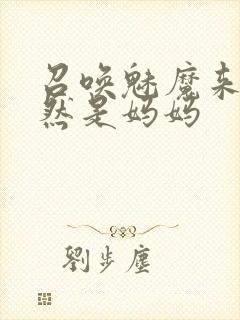 召唤魅魔来
然是妈妈
劉步塵